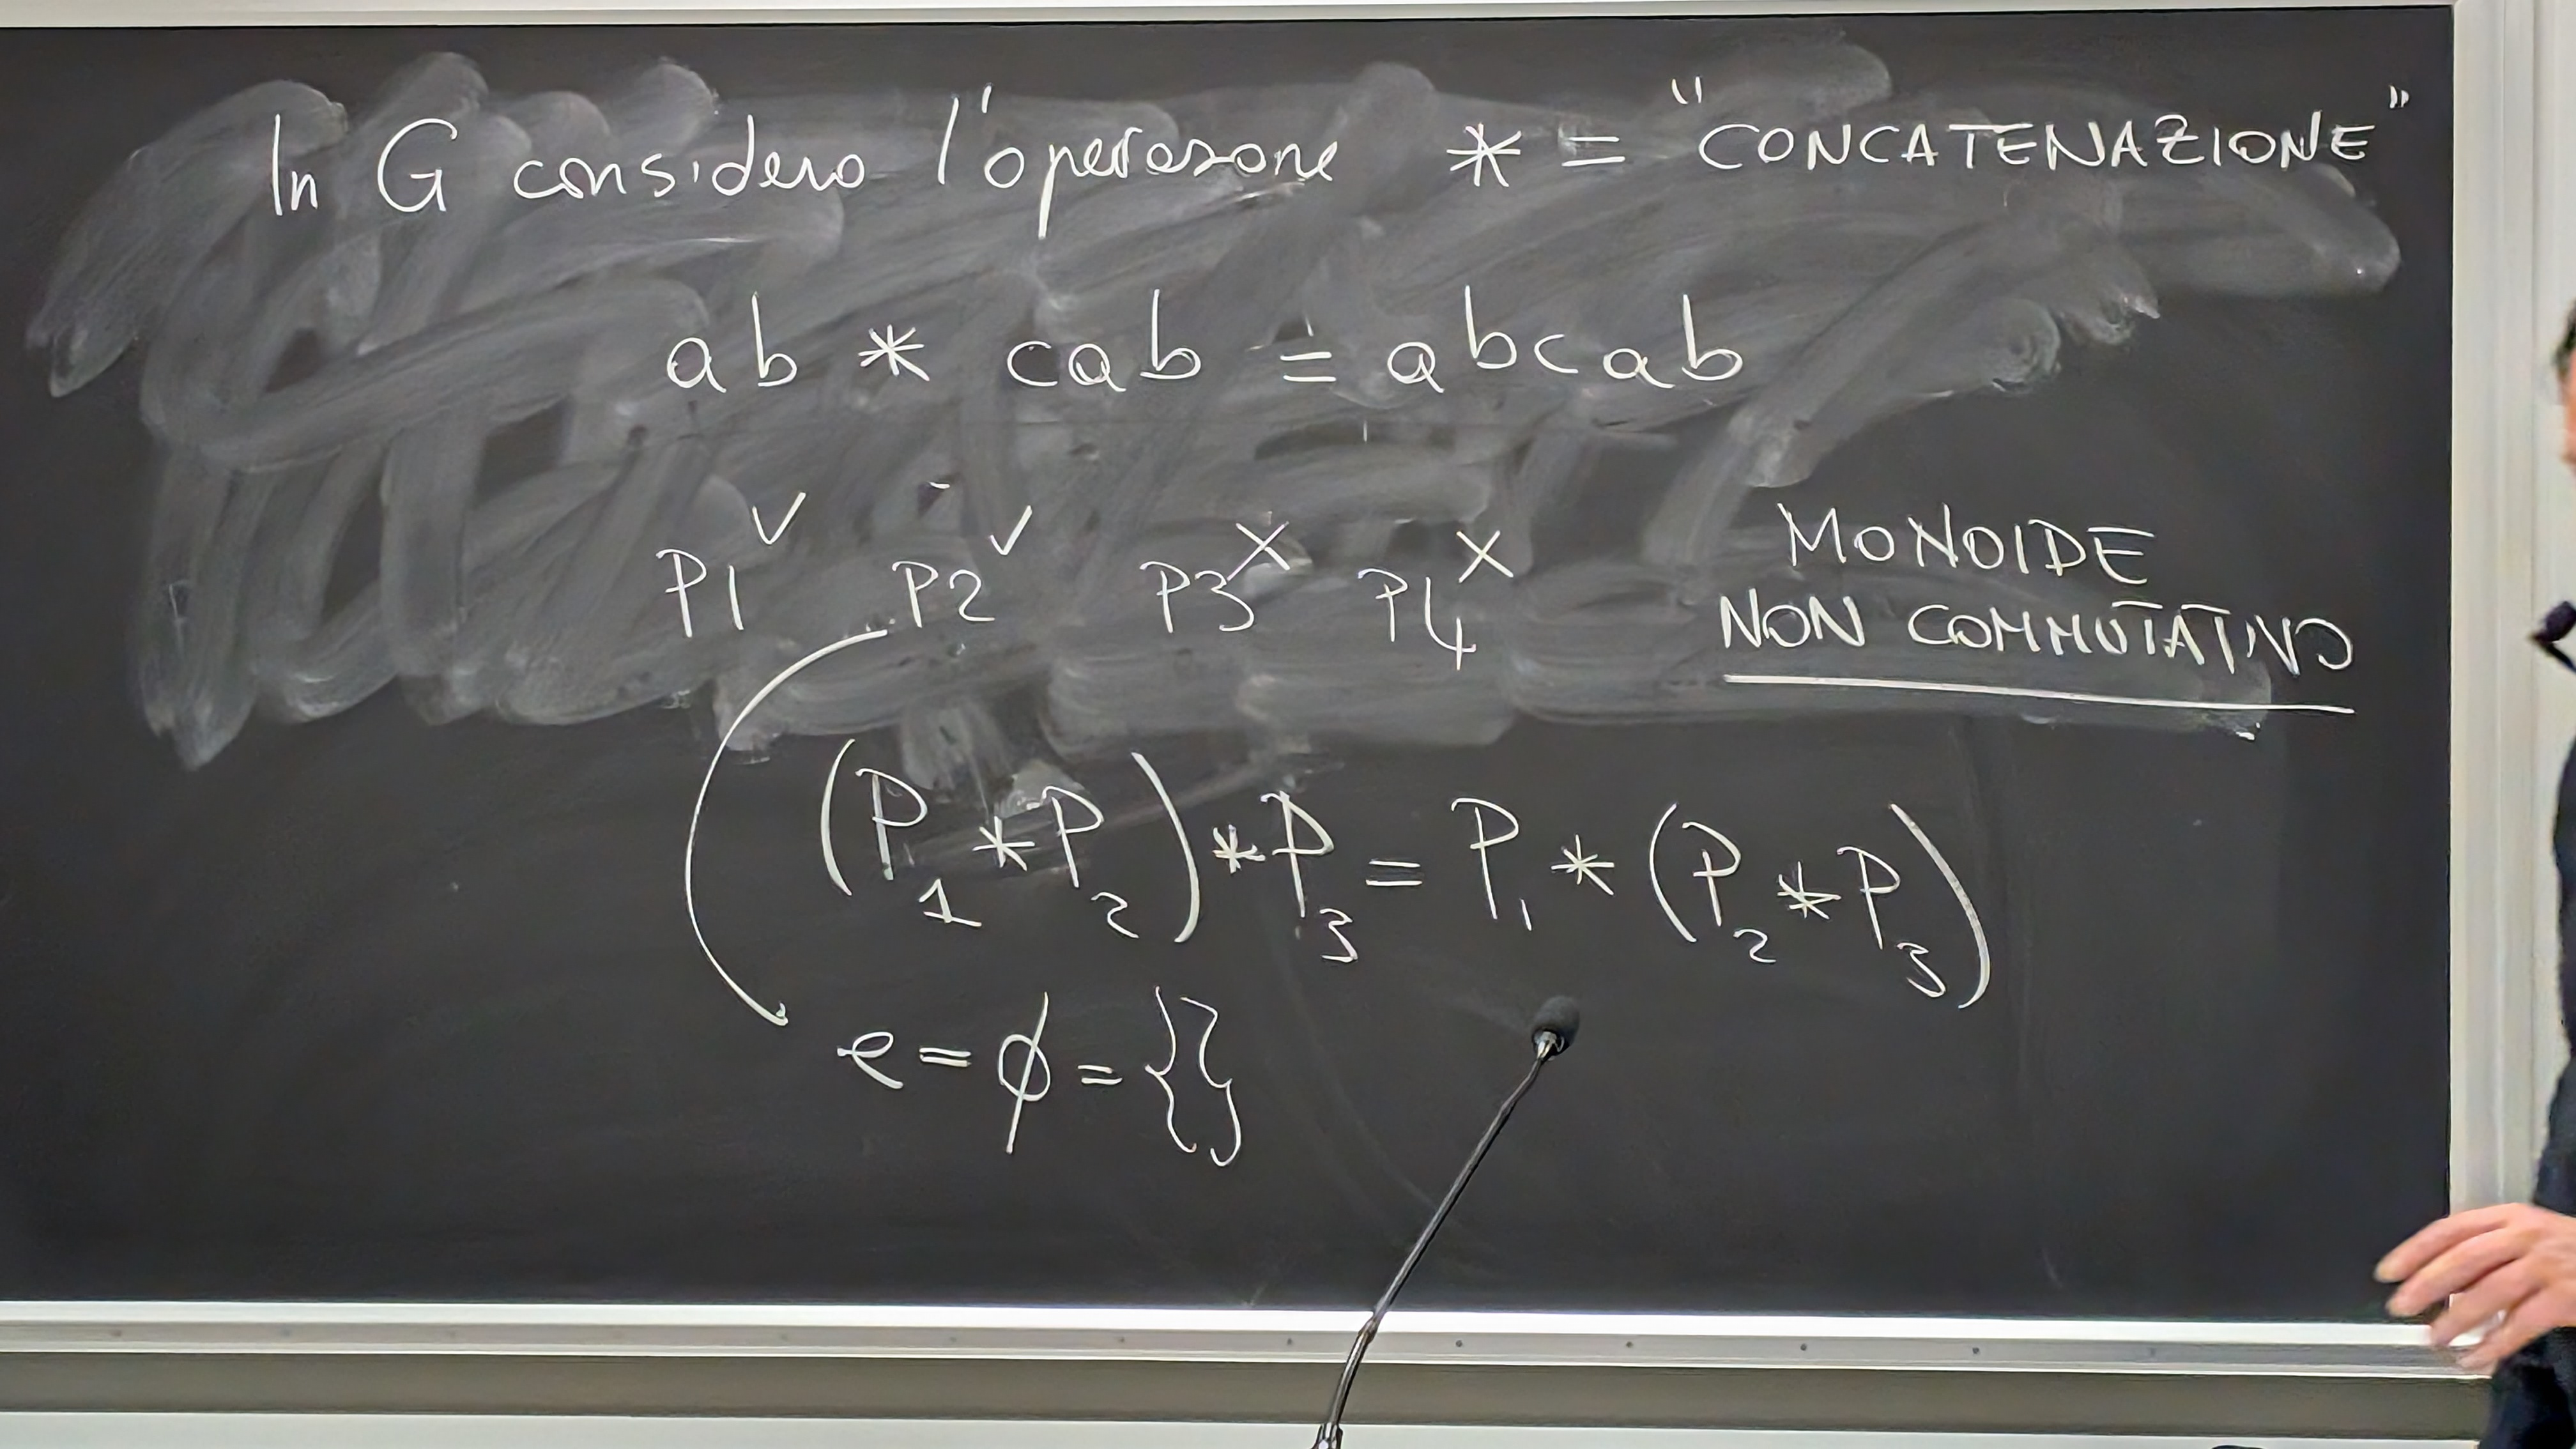 In G considero l'operazione * = "CONCATENAZIONE"
ab * cab = abcab
P1 ✓ P2 ✓ P3 X P4 X
MONOIDE
NON COMMUTATIVO
(P₁ * P₂) * P₃ = P₁ * (P₂ * P₃)
e = ϕ = {}